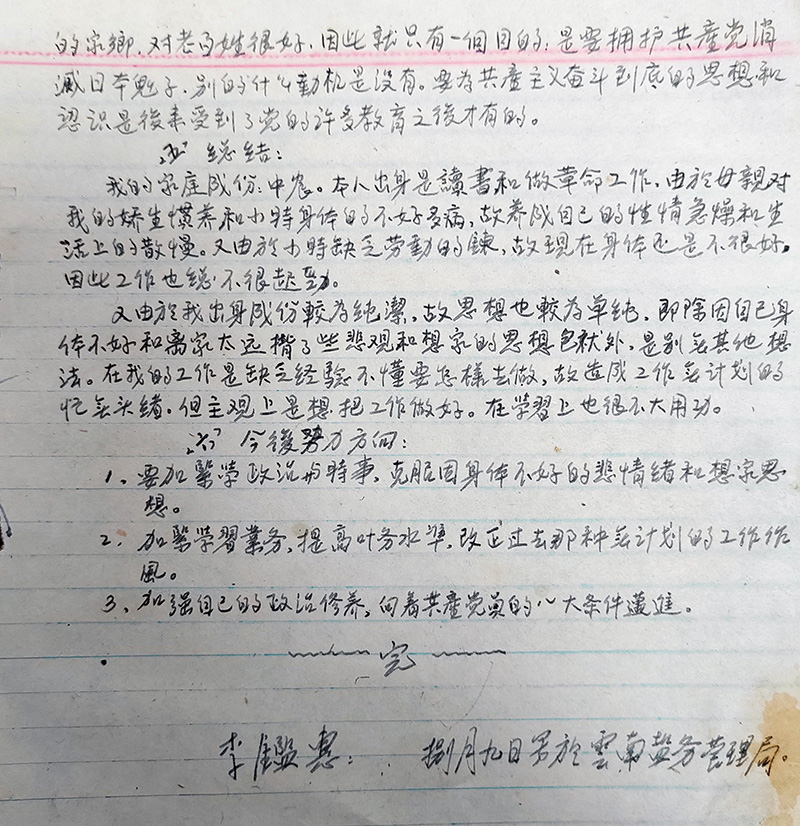 的家鄉，对老百姓很好，因此就只有一個目的：是要拥护共産党消
滅日本鬼子，别的什么動机是没有。要为共産主义奋斗到底的思想和
認识是後来受到了党的许多教育之後才有的。
五、总结：
我的家庭成份：中农。本人出身是讀書和做革命工作，由於母親对
我的娇生慣养和小時身体的不好多病，故养成自己的性情急燥和生
活上的散慢。又由於小時缺乏劳動的鍊，故現在身体还是不很好。
因此工作也总不很起勁。
又由於我出身成份較為纯潔，故思想也較為单纯，即除因自己身
体不好和离家太远揹了些悲观和想家的思想包袱外，是别無其他想
法。在我的工作是缺乏经驗不懂要怎樣去做，故造成工作無计划的
忙無头緒。但主观上是想把工作做好。在学習上也很不大用功。
六、今後努力方向：
1、要加緊学政治与時事，克服因身体不好的悲情绪和想家思
想。
2、加緊学習業务，提高叶务水準，改正过去那种無计划的工作作
風。
3、加强自己的政治修养，向着共産党員的八大条件邁進。
完
李鑑惠： 捌月九日写於雲南盐务管理局。